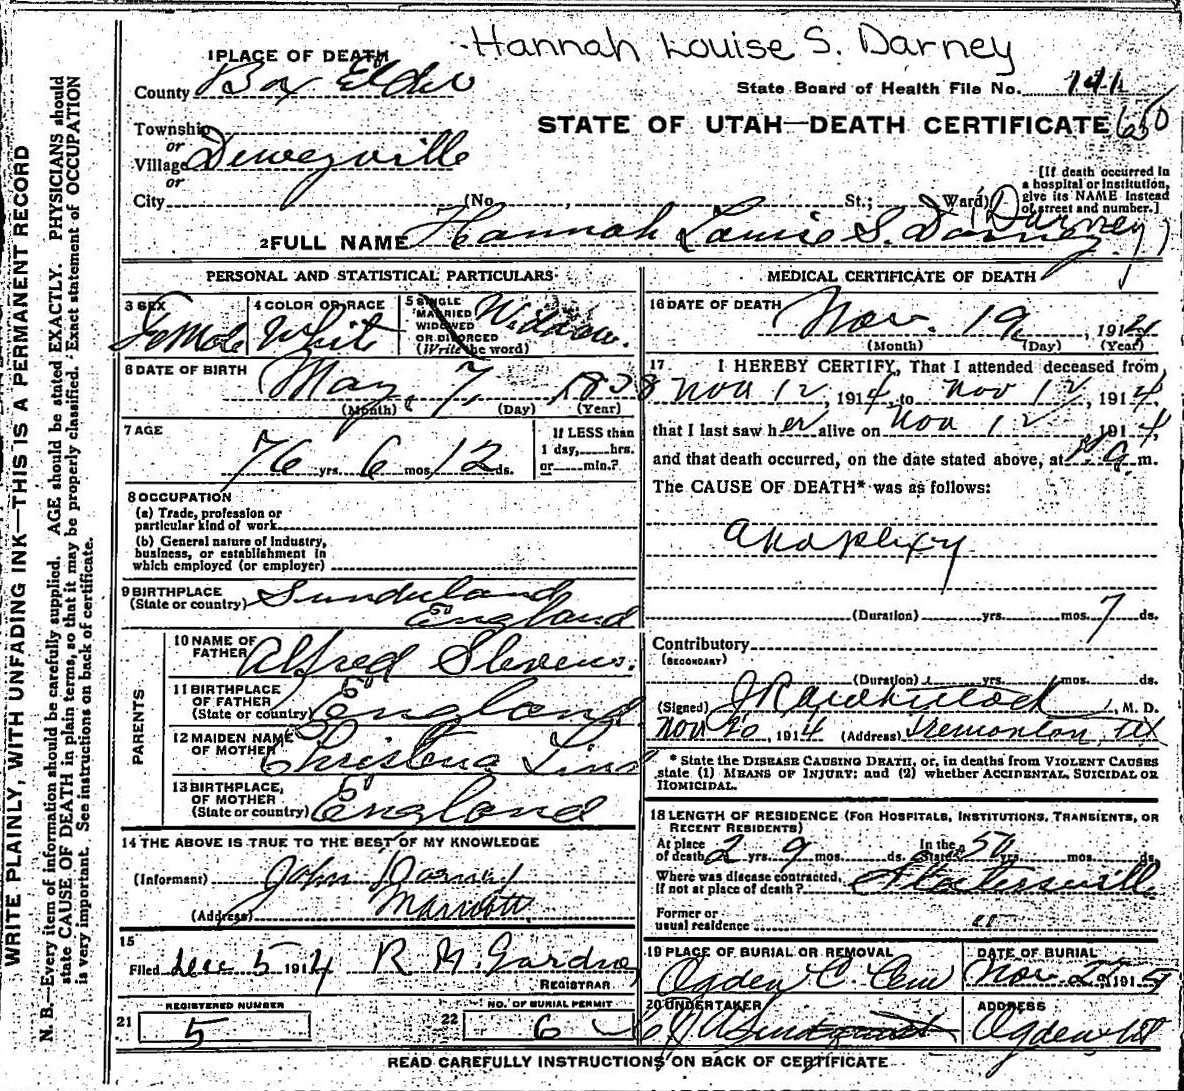 Hannah Louise S. Darney
1 PLACE OF DEATH
County Box Elder
State Board of Health File No. 141
STATE OF UTAH—DEATH CERTIFICATE 650
Township
or
Village Deweyville
or
City (No. , St.; Ward)
[If death occurred in
a hospital or institution,
give its NAME instead
of street and number.]
(Darney)
2 FULL NAME Hannah Louise S. Darney
PERSONAL AND STATISTICAL PARTICULARS
3 SEX Female
4 COLOR OR RACE White
5 SINGLE
MARRIED
WIDOWED
OR DIVORCED
(Write the word) Widow.
6 DATE OF BIRTH May 7, 1838
(Month) (Day) (Year)
7 AGE 76 yrs. 6 mos. 12 ds.
If LESS than
1 day, hrs.
or min.?
8 OCCUPATION
(a) Trade, profession or
particular kind of work
(b) General nature of industry,
business, or establishment in
which employed (or employer)
9 BIRTHPLACE
(State or country) Sunderland
England
PARENTS
10 NAME OF
FATHER Alfred Stevens.
11 BIRTHPLACE
OF FATHER
(State or country) England
12 MAIDEN NAME
OF MOTHER Christena
13 BIRTHPLACE,
OF MOTHER
(State or country) England
14 THE ABOVE IS TRUE TO THE BEST OF MY KNOWLEDGE
(Informant) John Darney
(Address) Marriott
15
Filed Dec 5 1914 R. M. Gardner
REGISTRAR
REGISTERED NUMBER
21 5
NO. OF BURIAL PERMIT
22 6
MEDICAL CERTIFICATE OF DEATH
16 DATE OF DEATH
Nov. 19, 1914
(Month) (Day) (Year)
17 I HEREBY CERTIFY, That I attended deceased from
Nov 12, 1914, to Nov 12, 1914,
that I last saw her alive on Nov 12, 1914,
and that death occurred, on the date stated above, at m.
The CAUSE OF DEATH* was as follows:
Apoplexy
(Duration) yrs. mos. 7 ds.
Contributory
(SECONDARY)
(Duration) yrs. mos. ds.
(Signed) , M. D.
Nov 20, 1914 (Address) Tremonton, Ut
* State the DISEASE CAUSING DEATH, or, in deaths from VIOLENT CAUSES
state (1) MEANS OF INJURY; and (2) whether ACCIDENTAL, SUICIDAL OR
HOMICIDAL.
18 LENGTH OF RESIDENCE (FOR HOSPITALS, INSTITUTIONS, TRANSIENTS, OR
RECENT RESIDENTS)
At place
of death 2 yrs. 9 mos. ds.
In the
State 50 yrs. mos. ds.
Where was disease contracted,
if not at place of death? Slatersville
Former or
usual residence
19 PLACE OF BURIAL OR REMOVAL
Ogden C. Cem
DATE OF BURIAL
Nov 22, 191
20 UNDERTAKER
ADDRESS
Ogden Ut
READ CAREFULLY INSTRUCTIONS ON BACK OF CERTIFICATE
WRITE PLAINLY, WITH UNFADING INK—THIS IS A PERMANENT RECORD
N. B.—Every item of information should be carefully supplied. AGE should be stated EXACTLY. PHYSICIANS should
state CAUSE OF DEATH in plain terms, so that it may be properly classified. Exact statement of OCCUPATION
is very important. See instructions on back of certificate.